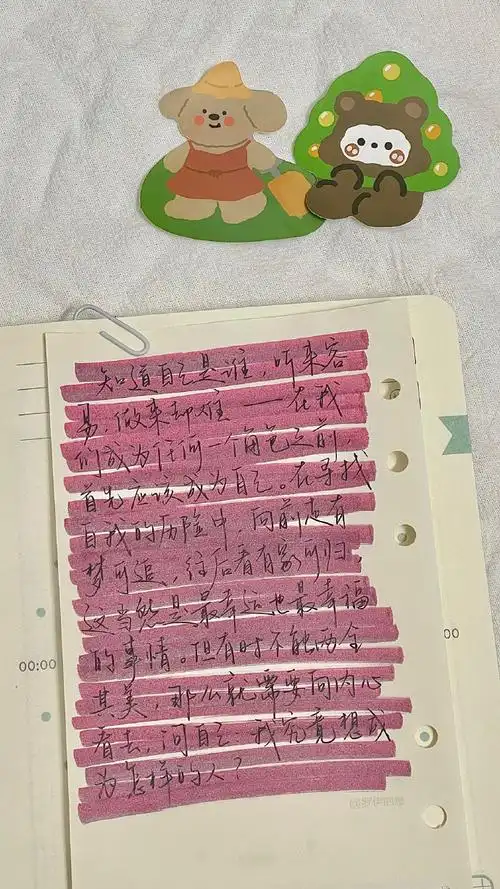 知道自己是谁，听来容
易，做来却难——在我
们成为任何一个角色之前，
首先应该成为自己。在寻找
自我的历险中，向前走有
梦可追，往后看有家可归，
这当然是最幸运也最幸福
的事情。但有时不能两全
其美，那么就需要向内心
看去，问自己：我究竟想成
为怎样的人？
00:00
00